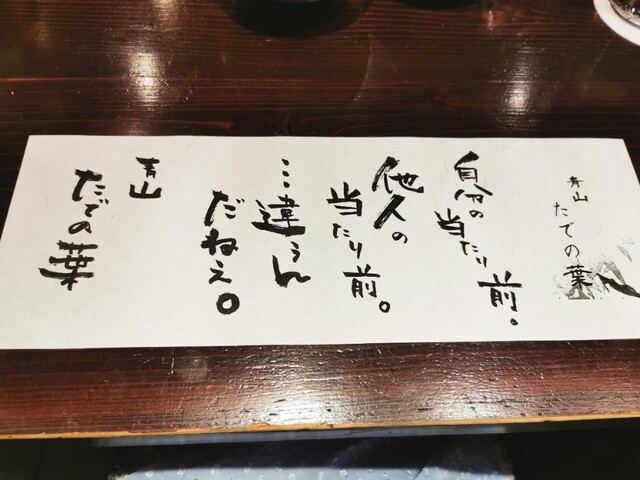 青山
たでの葉
自分の
当たり
前。
他人の
当たり
前。
…違うん
だねえ。
青山
たでの葉